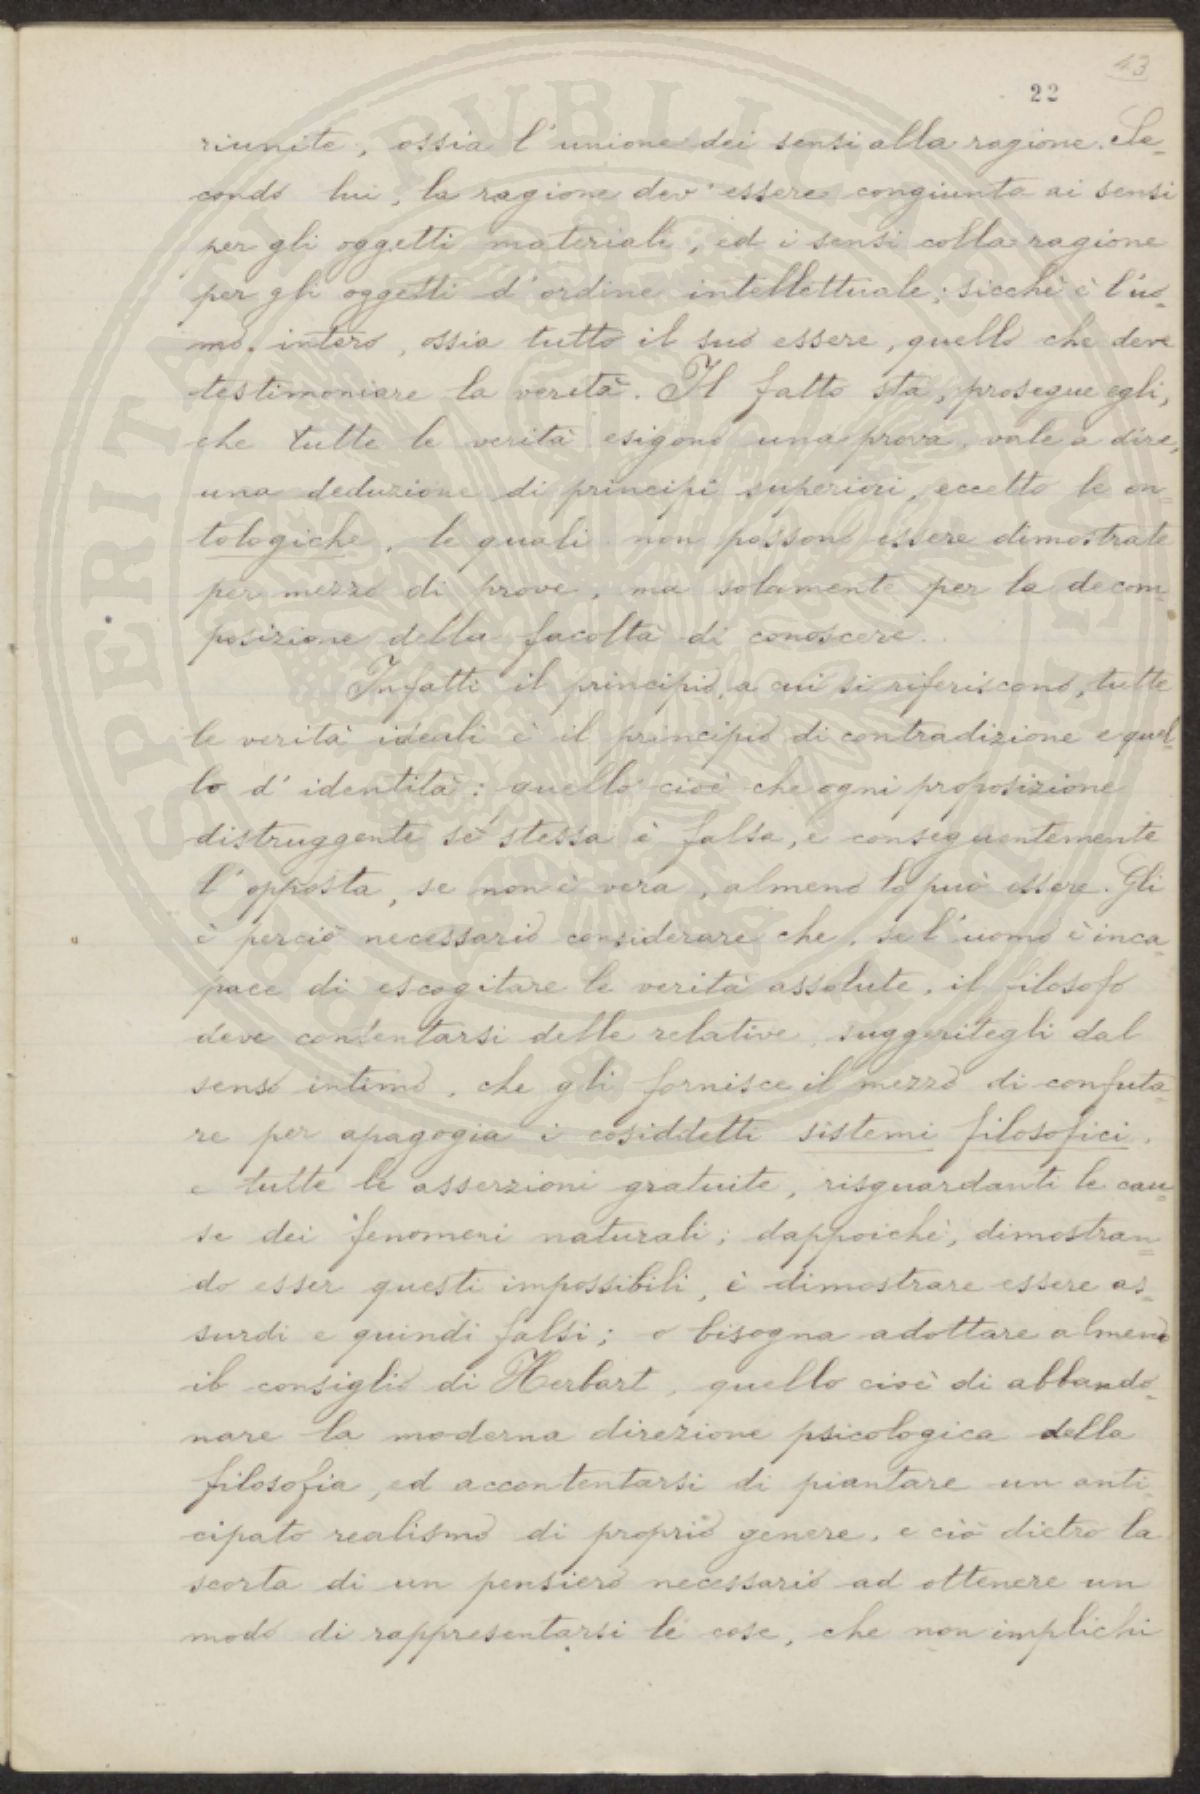 43
22
riunite, ossia l'unione dei sensi alla ragione. Se-
condo lui, la ragione dev'essere congiunta ai sensi
per gli oggetti materiali, ed i sensi colla ragione
per gli oggetti d'ordine intellettuale; sicchè è l'uo-
mo intero, ossia tutto il suo essere, quello che deve
testimoniare la verità. Il fatto sta, prosegue egli,
che tutte le verità esigono una prova, vale a dire,
una deduzione di principi superiori, eccetto le on-
tologiche, le quali non possono essere dimostrate
per mezzo di prove, ma solamente per la decom-
posizione della facoltà di conoscere.
Infatti il principio, a cui si riferiscono, tutte
le verità ideali è il principio di contradizione e quel-
lo d'identità; quello cioè che ogni proposizione
distruggente sè stessa è falsa, e conseguentemente
l'opposta, se non è vera, almeno lo può essere. Gli
è perciò necessario considerare che, se l'uomo è inca-
pace di escogitare le verità assolute, il filosofo
deve contentarsi delle relative, suggeritegli dal
senso intimo, che gli fornisce il mezzo di confuta-
re per apagogia i cosiddetti sistemi filosofici,
e tutte le asserzioni gratuite, risguardanti le cau-
se dei fenomeni naturali; dappoichè, dimostran-
do esser questi impossibili, è dimostrare essere as-
surdi e quindi falsi; o bisogna adottare almeno
il consiglio di Herbart, quello cioè di abbando-
nare la moderna direzione psicologica della
filosofia, ed accontentarsi di piantare un anti-
cipato realismo di proprio genere, e ciò dietro la
scorta di un pensiero necessario ad ottenere un
modo di rappresentarsi le cose, che non implichi
PROSPERITATI PVBLICAE